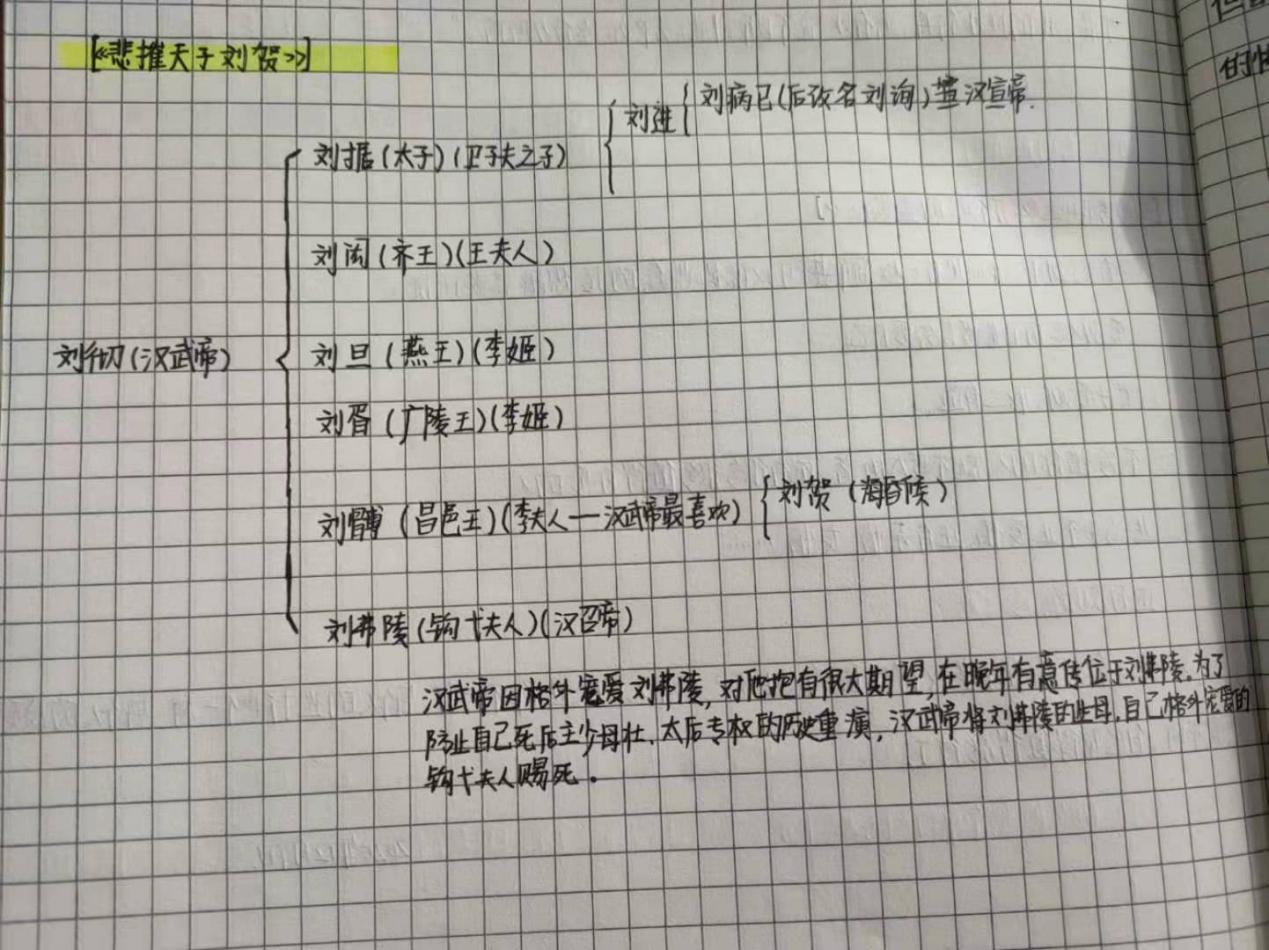 [《悲推天子刘贺》]
刘进{刘病已(后改名刘询) 汉宣帝.
刘据(太子)(卫子夫之子)
刘闳(齐王)(王夫人)
刘彻(汉武帝)
刘旦(燕王)(李姬)
刘胥(广陵王)(李姬)
刘髆(昌邑王)(李夫人—汉武帝最喜欢){刘贺(海昏侯)
刘弗陵(钩弋夫人)(汉召帝)
汉武帝因格外宠爱刘弗陵,对他抱有很大期望,在晚年有意传位于刘弗陵.为了
防止自己死后主少母壮、太后专权的历史重演,汉武帝将刘弗陵的生母,自己格外宠爱的
钩弋夫人赐死.
的